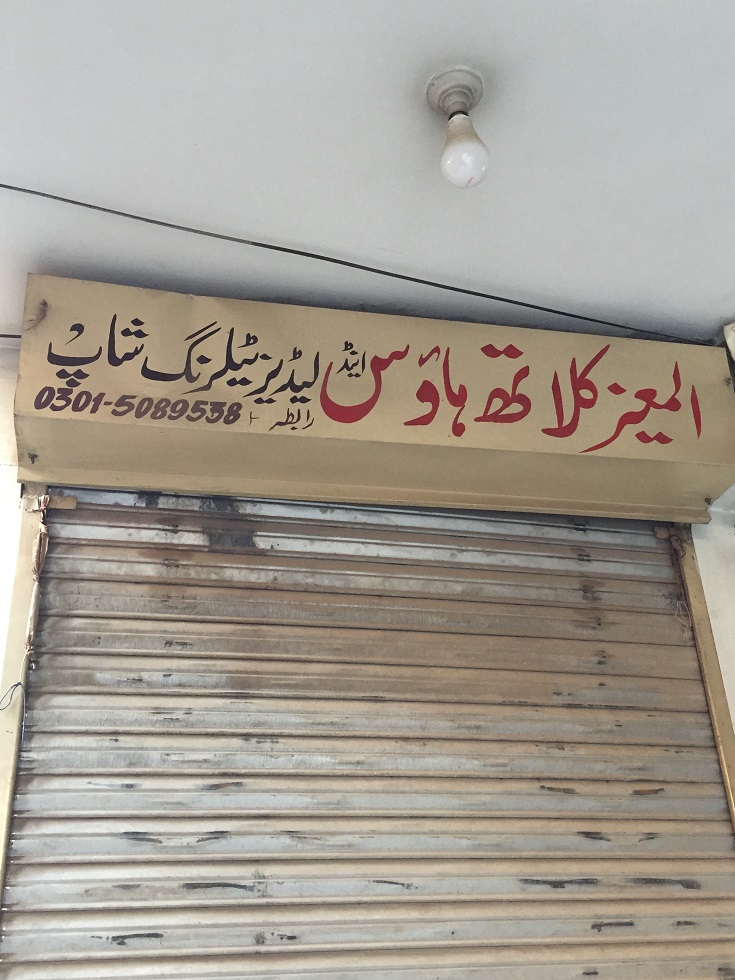 المعیز کلاتھ ہاؤس اینڈ لیڈیز ٹیلرنگ شاپ
رابطہ 0301-5089538